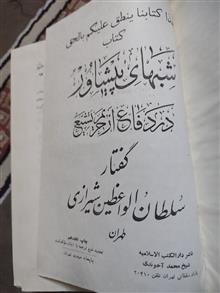 كتابنا ينطق عليكم بالحق
كتاب
شبهای پیشاور
در دفاع از حریم تشیع
گفتار
سلطان الواعظین شیرازی
طهران
ناشر دار الکتب الاسلامیه
شیخ محمد آخوندی
بازار سلطانی تهران تلفن ۲۰۴۱۰